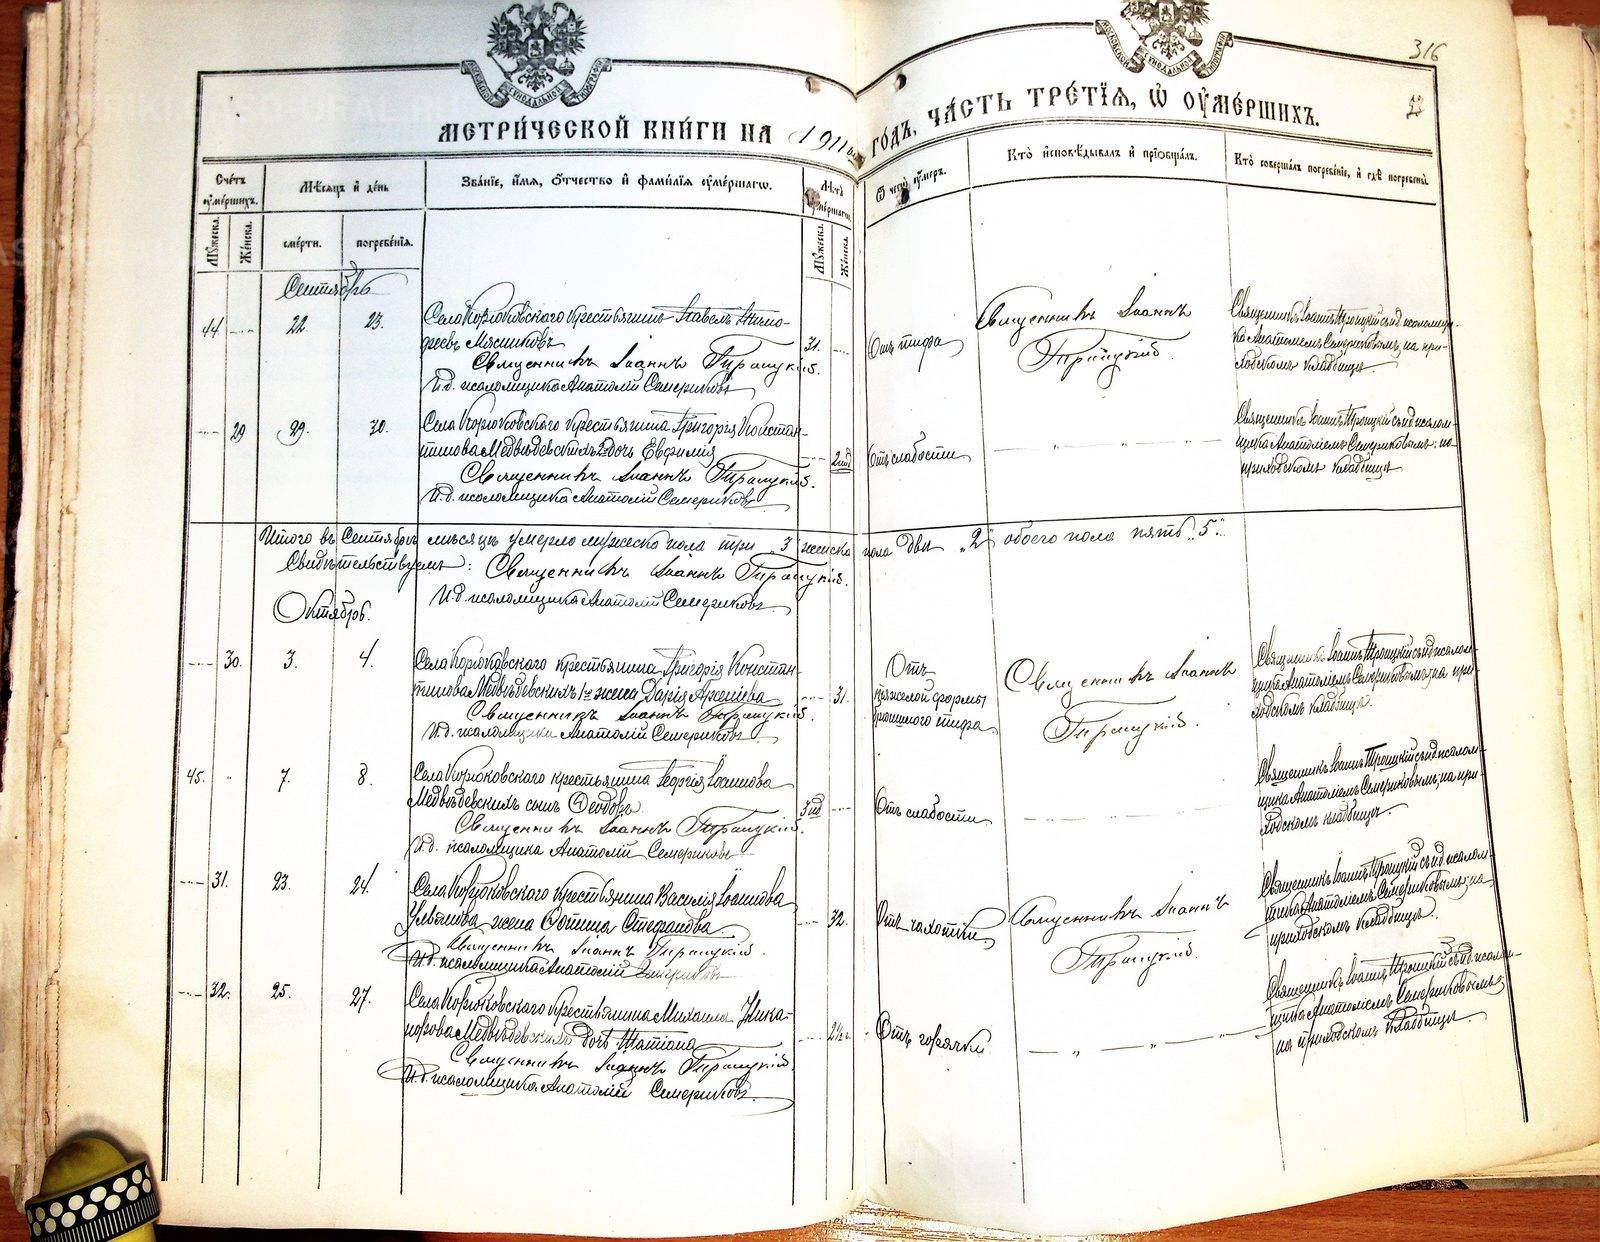 316
52
МЕТРИ́ЧЕСКОЙ КНИ́ГИ НА 1911 ГО́ДЪ, ЧА́СТЬ ТРЕ́ТІЯ, Ѽ ОУМЕ́РШИХЪ.
Сче́тъ оуме́ршихъ.
Мꙋ́жеска.
Же́нска.
Мѣ́сяцъ и҆ де́нь
сме́рти.
погребе́нїя.
Зва́нїе, и҆́мя, ѻ҆́тчество и҆ фами́лїя оуме́ршагѡ.
Лѣ́та оуме́ршагѡ.
Мꙋ́жеска.
Же́нска.
Ѿ чегѡ̀ оу҆́меръ.
Кто̀ и҆сповѣ́дывалъ и҆ прїѡбща́лъ.
Кто̀ соверша́лъ погребе́нїе, и҆ гдѣ̀ погребены̀.
Сентябрь
44 22. 23. Села Корюковского крестьянинъ Павелъ Тимо-
феевъ Мясниковъ 31. Отъ тифа
Священникъ Іоаннъ Троицкій.
И.д. псаломщика Анатолій Семериковъ
Священникъ Іоаннъ
Троицкій.
Священникъ Іоаннъ Троицкій съ и.д. псаломщи-
ка Анатоліемъ Семериковымъ, на при-
ходскомъ кладбищѣ
29 29. 30. Села Корюковского крестьянина Григорія Констан-
тинова Медвѣдевскихъ дочь Евфимія 2 нд Отъ слабости
Священникъ Іоаннъ Троицкій.
И.д. псаломщика Анатолій Семериковъ
Священникъ Іоаннъ Троицкій съ и.д. псалом-
щика Анатоліемъ Семериковымъ; на
приходскомъ кладбищѣ
Итого въ Сентябрѣ мѣсяцѣ умерло мужеска пола три „3" женска пола двѣ „2" обоего пола пять „5".
Свидѣтельствуемъ: Священникъ Іоаннъ Троицкій.
И.д. псаломщика Анатолій Семериковъ
Октябрь.
30. 3. 4. Села Корюковского крестьянина Григорія Констан-
тинова Медвѣдевскихъ жена Дарія Арсеніева 31.
Священникъ Іоаннъ Троицкій.
И.д. псаломщика Анатолій Семериковъ
Отъ
тяжелой формы
брюшного тифа
Священникъ Іоаннъ
Троицкій.
Священникъ Іоаннъ Троицкій съ и.д. псалом-
щика Анатоліемъ Семериковымъ, на при-
ходскомъ кладбищѣ.
45. 7. 8. Села Корюковского крестьянина Георгія Іоаннова
Медвѣдевскихъ сынъ Ѳеодоръ 3 нд Отъ слабости
Священникъ Іоаннъ Троицкій.
И.д. псаломщика Анатолій Семериковъ
Священникъ Іоаннъ Троицкій съ и.д. псалом-
щика Анатоліемъ Семериковымъ, на при-
ходскомъ кладбищѣ.
31. 23. 24. Села Корюковского крестьянина Василія Іоаннова
Ульянова жена Фотина Стефанова 32. Отъ чахотки
Священникъ Іоаннъ Троицкій.
И.д. псаломщика Анатолій Семериковъ
Священникъ Іоаннъ
Троицкій.
Священникъ Іоаннъ Троицкій съ и.д. псалом-
щика Анатоліемъ Семериковымъ; на
приходскомъ кладбищѣ.
32. 25. 27. Села Корюковского крестьянина Михаила Ника-
норова Медвѣдевскихъ дочь Татіана Отъ горячки.
Священникъ Іоаннъ Троицкій.
И.д. псаломщика Анатолій Семериковъ.
Священникъ Іоаннъ Троицкій съ и.д. псалом-
щика Анатоліемъ Семериковымъ;
на приходскомъ кладбищѣ.